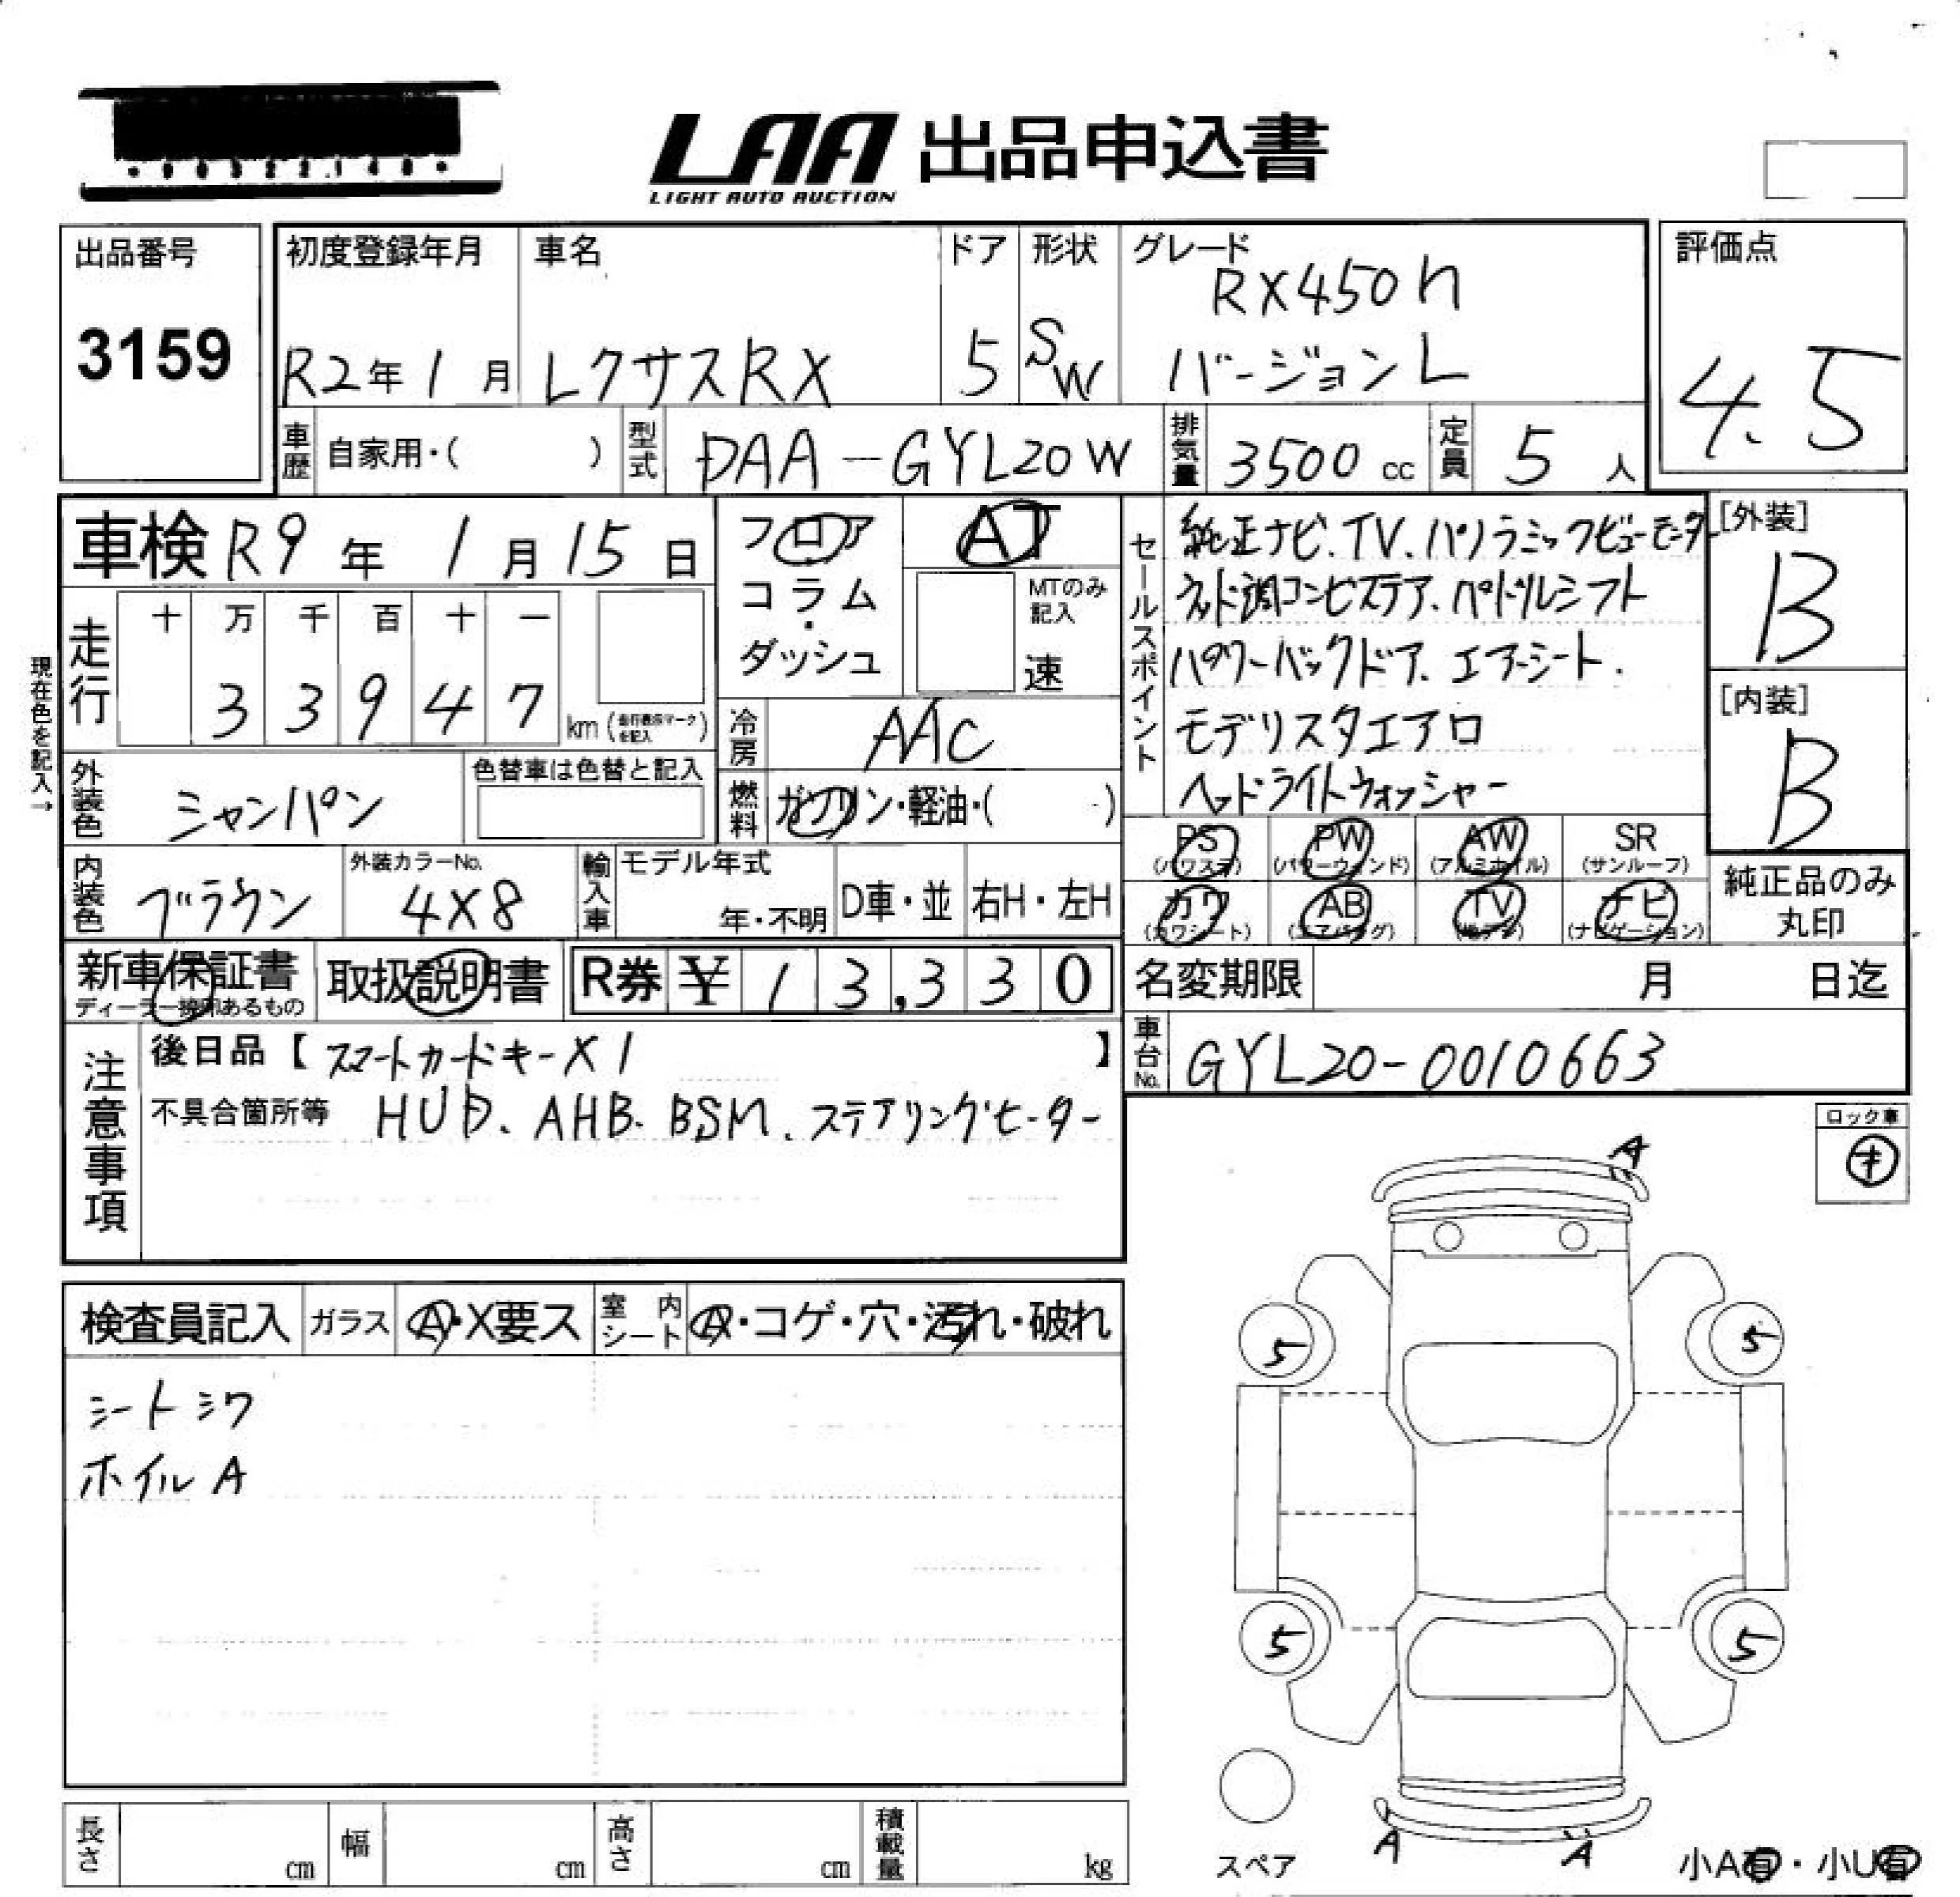 LAA 出品申込書
LIGHT AUTO AUCTION
出品番号
3159
初度登録年月
R2年1月
車名
レクサスRX
ドア
5
形状
SW
グレード
RX450h
バージョンL
評価点
4.5
車歴 自家用・( )
型式 DAA-GYL20W
排気量 3500 cc
定員 5 人
車検 R9年1月15日
フロア
コラム
・
ダッシュ
AT
MTのみ
記入
速
セールスポイント
純正ナビ.TV.パノラミックビューモニター
ウッド調コンビステア.パドルシフト
パワーバックドア.エアーシート.
モデリスタエアロ
ヘッドライトウォッシャー
[外装]
B
[内装]
B
現在色を記入→
走行
十 万 千 百 十 一
3 3 9 4 7 km (走行表示マークを記入)
冷房 AAC
外装色 シャンパン
色替車は色替と記入
燃料 ガソリン・軽油・( )
内装色 ブラウン
外装カラーNo.
4X8
輸入車
モデル年式
年・不明
D車・並
右H・左H
PS PW AW SR
(パワステ) (パワーウィンド) (アルミホイル) (サンルーフ)
カワ AB TV ナビ
(カワシート) (エアバッグ) (地デジ) (ナビゲーション)
純正品のみ
丸印
新車保証書
ディーラー捺印あるもの
取扱説明書
R券 ¥ 13,330
名変期限 月 日迄
車台No. GYL20-0010663
注意事項
後日品【スマートカードキーX1 】
不具合箇所等 HUD.AHB.BSM.ステアリングヒーター
ロック車
キ
検査員記入 ガラス A・X要ス 室内シート A・コゲ・穴・汚れ・破れ
シートシワ
ホイルA
A
5 5
5 5
A A
スペア
小A有・小U有
長さ cm 幅 cm 高さ cm 積載量 kg